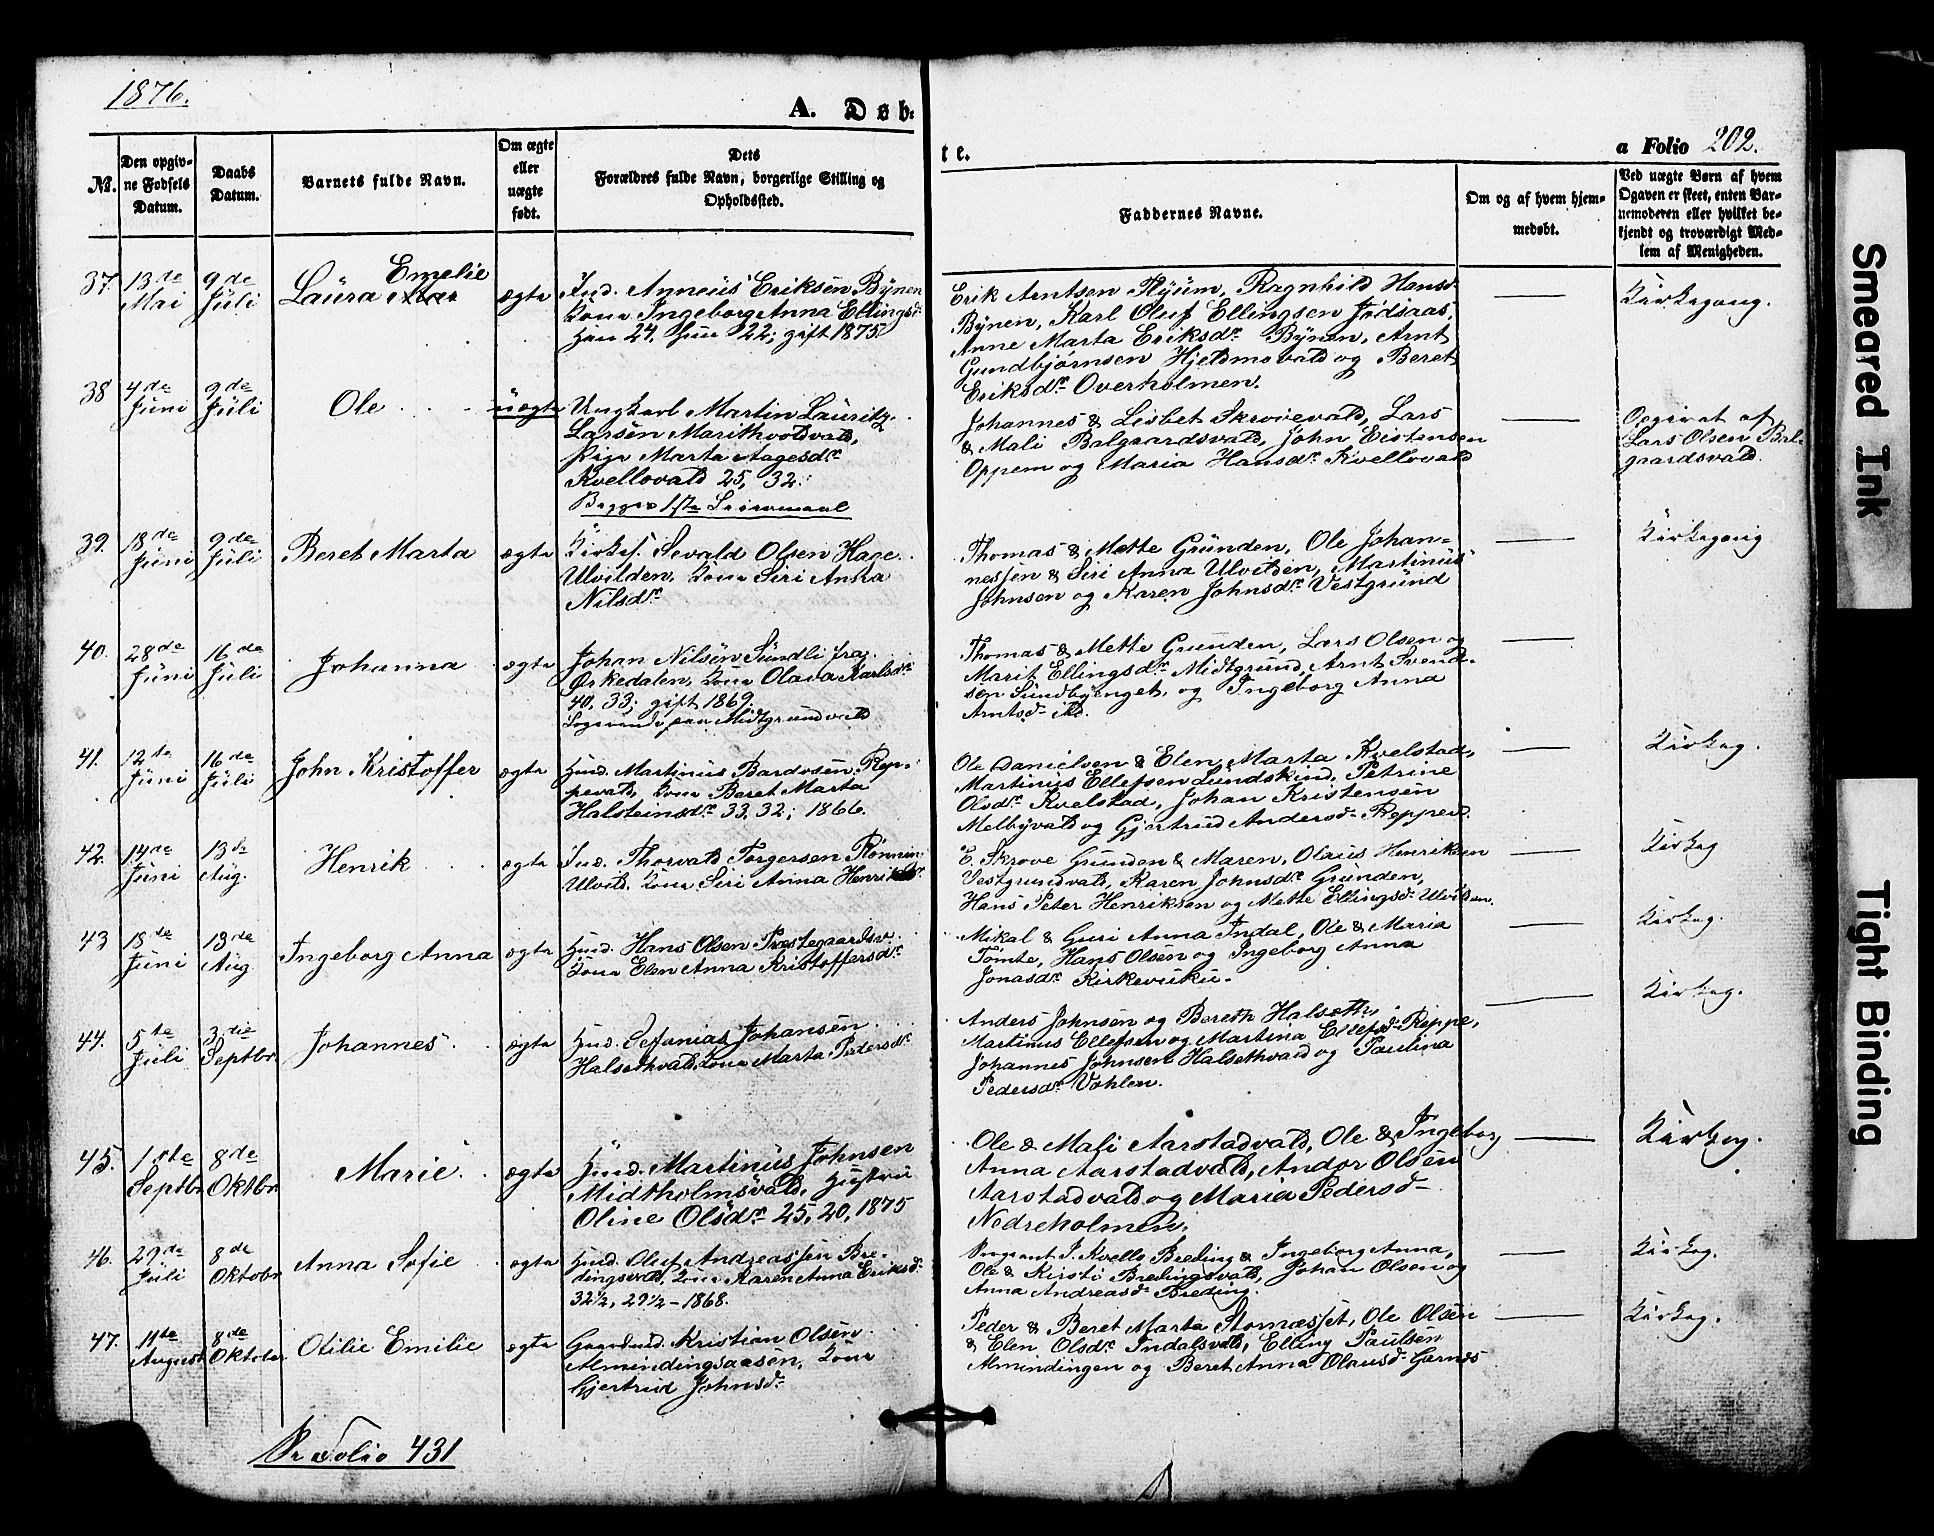 1876.
A. Døb-
te.
a Folio 202.
№.
Den opgiv-
ne Fødsels
Datum.
Daabs
Datum.
Barnets fulde Navn.
Om ægte
eller
uægte
født.
Dets
Forældres fulde Navn, borgerlige Stilling og
Opholdssted.
Faddernes Navne.
Om og af hvem hjem-
medøbt.
Ved uægte Børn af hvem
Opgaven er skeet, enten Bar-
nemoderen eller hvilket be-
kjendt og troværdigt Med-
lem af Menigheden.
37. 13de Mai
9de Juli
Laura Emelie
ægte
Ind. Anneus Eriksen Bynen
Kone Ingeborg Anna Ellingsdr
Han 24, hun 22; gift 1875.
Erik Arntsen Flyum, Ragnhild Hansd
Bynen, Karl Oluf Ellingsen Jødsaas,
Anne Marta Eriksdr Bynen, Arnt
Gundbjørnsen Hjeldmovald og Beret
Eriksdr Overholmen.
Kirkegang.
38 4de Juni
9de Juli
Ole
uægte
Ungkarl Martin Lauritz
Larsen Marithvoldvald,
Pige Marta Aagesdr
Kvellovald 25, 32.
Begges 1ste Leiermaal
Johannes & Lisbet Skrovevald, Lars
& Mali Balgaardsvald, John Eistensen
Oppem og Maria Hansdr Kvellovald
Opgivet af
Lars Olsen Bal-
gaardsvald.
39. 18de Juni
9de Juli
Beret Marta
ægte
Kirkes. Sevald Olsen Hage
Ulvilden, Kone Siri Anna
Nilsdr
Thomas & Mette Grunden, Ole Johan-
nessen & Siri Anna Ulvilden, Martinus
Johnsen og Karen Johnsdr Vestgrund
Kirkegang
40. 28de Juni
16de Juli
Johanna
ægte
Johan Nilsen Sundli fra
Orkedalen, Kone Olava Karlsdr
40, 33; gift 1869.
Logerende paa Midtgrundvald
Thomas & Mette Grunden, Lars Olsen og
Marit Ellingsdr Midtgrund, Arnt Svend-
sen Sundbyenget, og Ingeborg Anna
Arntsd itd.
41. 12te Juni
16de Juli
John Kristoffer
ægte
Husd. Martinus Bardosen Rep-
pevald, Kone Beret Marta
Halsteinsdr 33, 32; 1866.
Ole Danielsen & Elen Marta Kvelstad,
Martinus Ellefsen Lundskind, Petrine
Olsdr Kvelstad, Johan Kristensen
Melbyvald og Gjertrud Andersd Reppen.
Kirkeg.
42. 14de Juni
13de Aug.
Henrik
ægte
Ind. Thorvald Torgersen Rønnin
Ulvild, Kone Siri Anna Henriksdr
E. Skrove Grunden & Maren, Olaus Henriksen
Vestgrundvald, Karen Johnsdr Grunden,
Hans Peter Henriksen og Mette Ellingsd Ulvilden.
Kirkeg
43 18de Juni
13de Aug.
Ingeborg Anna
ægte
Husd. Hans Olsen Præstegaardsv.
Kone Elen Anna Kristoffersdr
Mikal & Guri Anna Indal, Ole & Maria
Tomte, Hans Olsen og Ingeborg Anna
Jonasdr Kirkevuku.
Kirkeg.
44. 5te Juli
3die Septbr
Johannes
ægte
Husd. Sefanias Johansen
Halsethvald, Kone Marta Pedersdr
Anders Johnsen og Bereth Halseth,
Martinus Ellefsen og Martina Ellefsd Reppe,
Johannes Johnsen Halsethvald og Paulina
Pedersdr Vohlen.
Kirkeg.
45. 1ste Septbr
8de Oktbr
Marie
ægte
Husd. Martinus Johnsen
Midtholmsvald, Hustru
Oline Olsdr 25, 20, 1875
Ole & Mali Aarstadvald, Ole & Ingeborg
Anna Aarstadvald, Andor Olsen
Aarstadvald og Maria Pedersd
Nedreholmen.
Kirkeg.
46. 29de Juli
8de Oktobr
Anna Sofie
ægte
Husd. Oluf Andreassen Bre-
dingsvald, Kone Karen Anna Eriksd
32½, 29½ – 1868.
Sergeant P. Kvello Breding & Ingeborg Anna,
Ole & Kirsti Bredingsvald, Johan Olsen og
Anna Andreasd Breding.
Kirkeg.
47. 11te August
8de Oktober
Otilie Emilie
ægte
Gaardmd. Kristian Olsen
Almindingsaasen, Kone
Gjertrud Johnsd
Peder & Beret Marta Stornæsset, Ole Olsen
& Elen Olsdr Indalsvald, Elling Paulsen
Almindingen og Beret Anna Olausd Garnes
Kirkeg.
Se Folio 431
Smeared Ink
Tight Binding